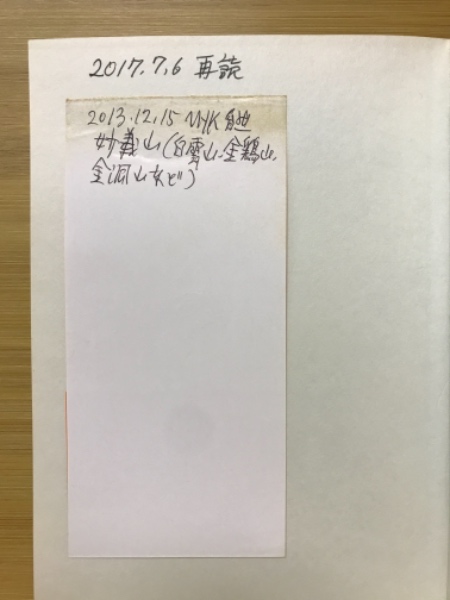 2017.7.6 再読
2013.12.15 NHK
妙義山(白雲山-金鶏山,
金洞山など)